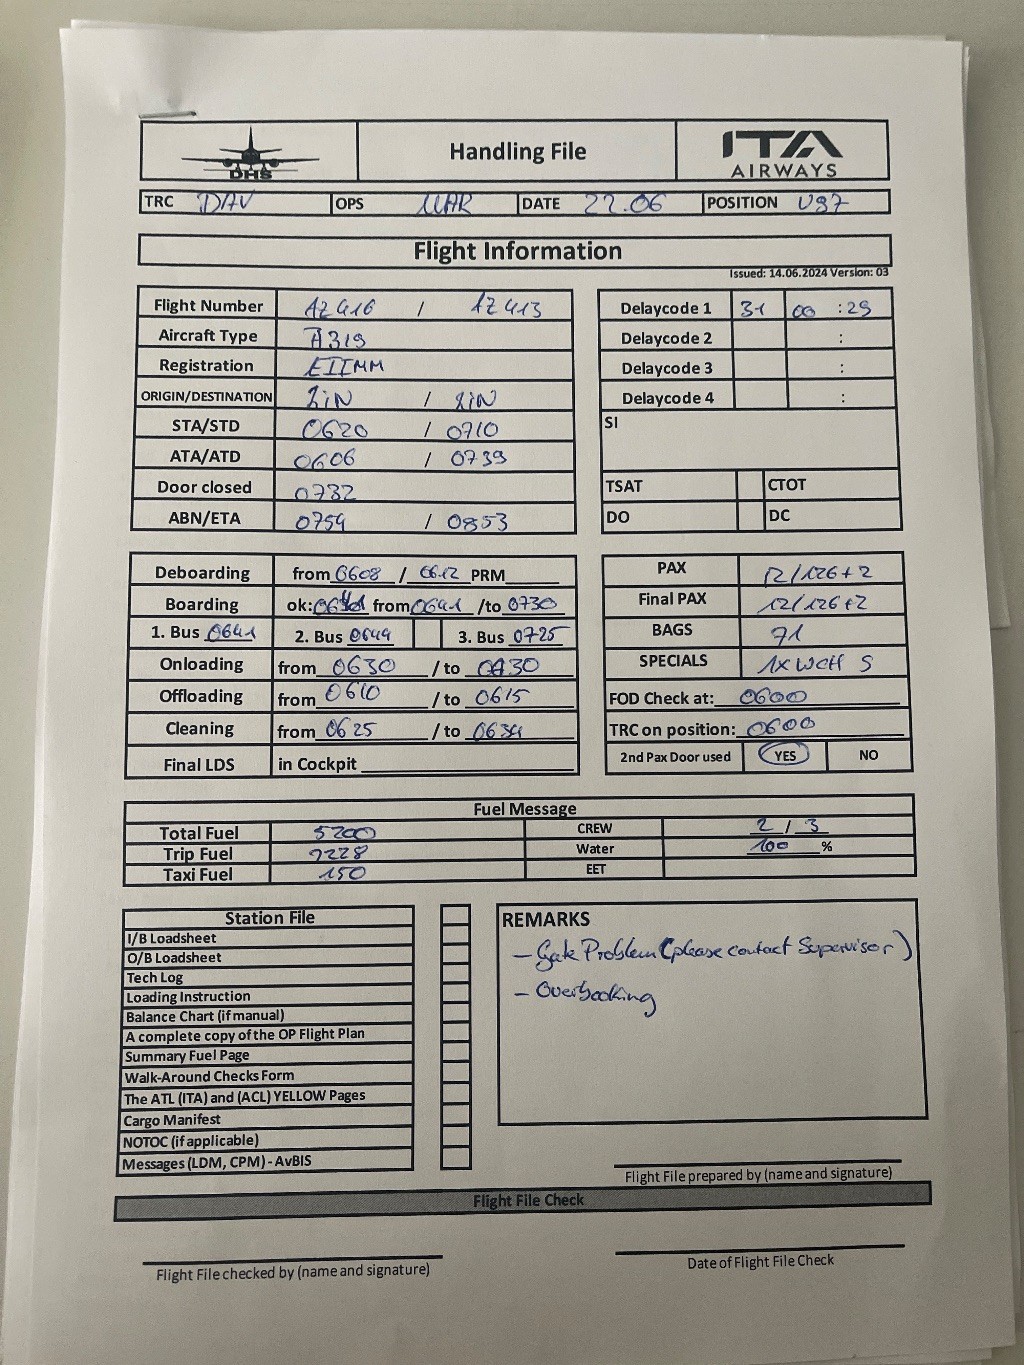 DHS
Handling File
ITA
AIRWAYS
TRC DAV OPS MAR DATE 22.06 POSITION V97
Flight Information
Issued: 14.06.2024 Version: 03
Flight Number AZ416 / AZ413
Aircraft Type A319
Registration EIIMM
ORIGIN/DESTINATION LiN / LiN
STA/STD 0620 / 0710
ATA/ATD 0606 / 0739
Door closed 0732
ABN/ETA 0754 / 0853
Delaycode 1 31 00 :29
Delaycode 2 :
Delaycode 3 :
Delaycode 4 :
SI
TSAT CTOT
DO DC
Deboarding from 0608 / 0612 PRM
Boarding ok: from 0641 /to 0730
1. Bus 0641 2. Bus 0649 3. Bus 0725
Onloading from 0630 / to 0730
Offloading from 0610 / to 0615
Cleaning from 0625 / to 0634
Final LDS in Cockpit
PAX 12/126+2
Final PAX 12/126+2
BAGS 71
SPECIALS 1x WCH S
FOD Check at: 0600
TRC on position: 0600
2nd Pax Door used YES NO
Fuel Message
Total Fuel 5200 CREW 2 / 3
Trip Fuel 2228 Water 100 %
Taxi Fuel 150 EET
Station File
I/B Loadsheet
O/B Loadsheet
Tech Log
Loading Instruction
Balance Chart (if manual)
A complete copy of the OP Flight Plan
Summary Fuel Page
Walk-Around Checks Form
The ATL (ITA) and (ACL) YELLOW Pages
Cargo Manifest
NOTOC (if applicable)
Messages (LDM, CPM) - AvBIS
REMARKS
- Gate Problem (please contact Supervisor)
- Overbooking
Flight File prepared by (name and signature)
Flight File Check
Flight File checked by (name and signature)
Date of Flight File Check